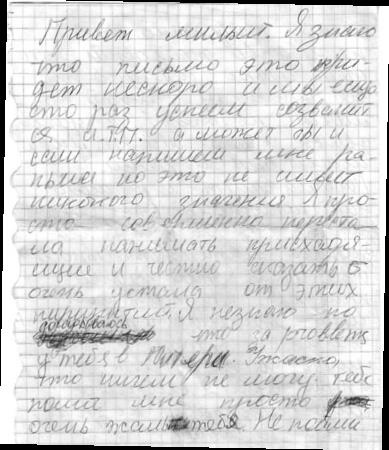 Привет милый. Я знаю
что письмо это при-
дет нескоро и мы еще
сто раз успеем созвонит
ся и т.п. а может ты и
сам напишеш мне ра-
ньше но это не имеет
никокого значения Я про-
сто совершенно переста-
ла понимать происходя-
щие и честно сказать
очень устала от этих
Я незнаю но
догадываюсь что за
у тебя в Питере. Ужасно,
что ничем не могу тебе
помоч мне просто
очень жаль тебя. Не пойми